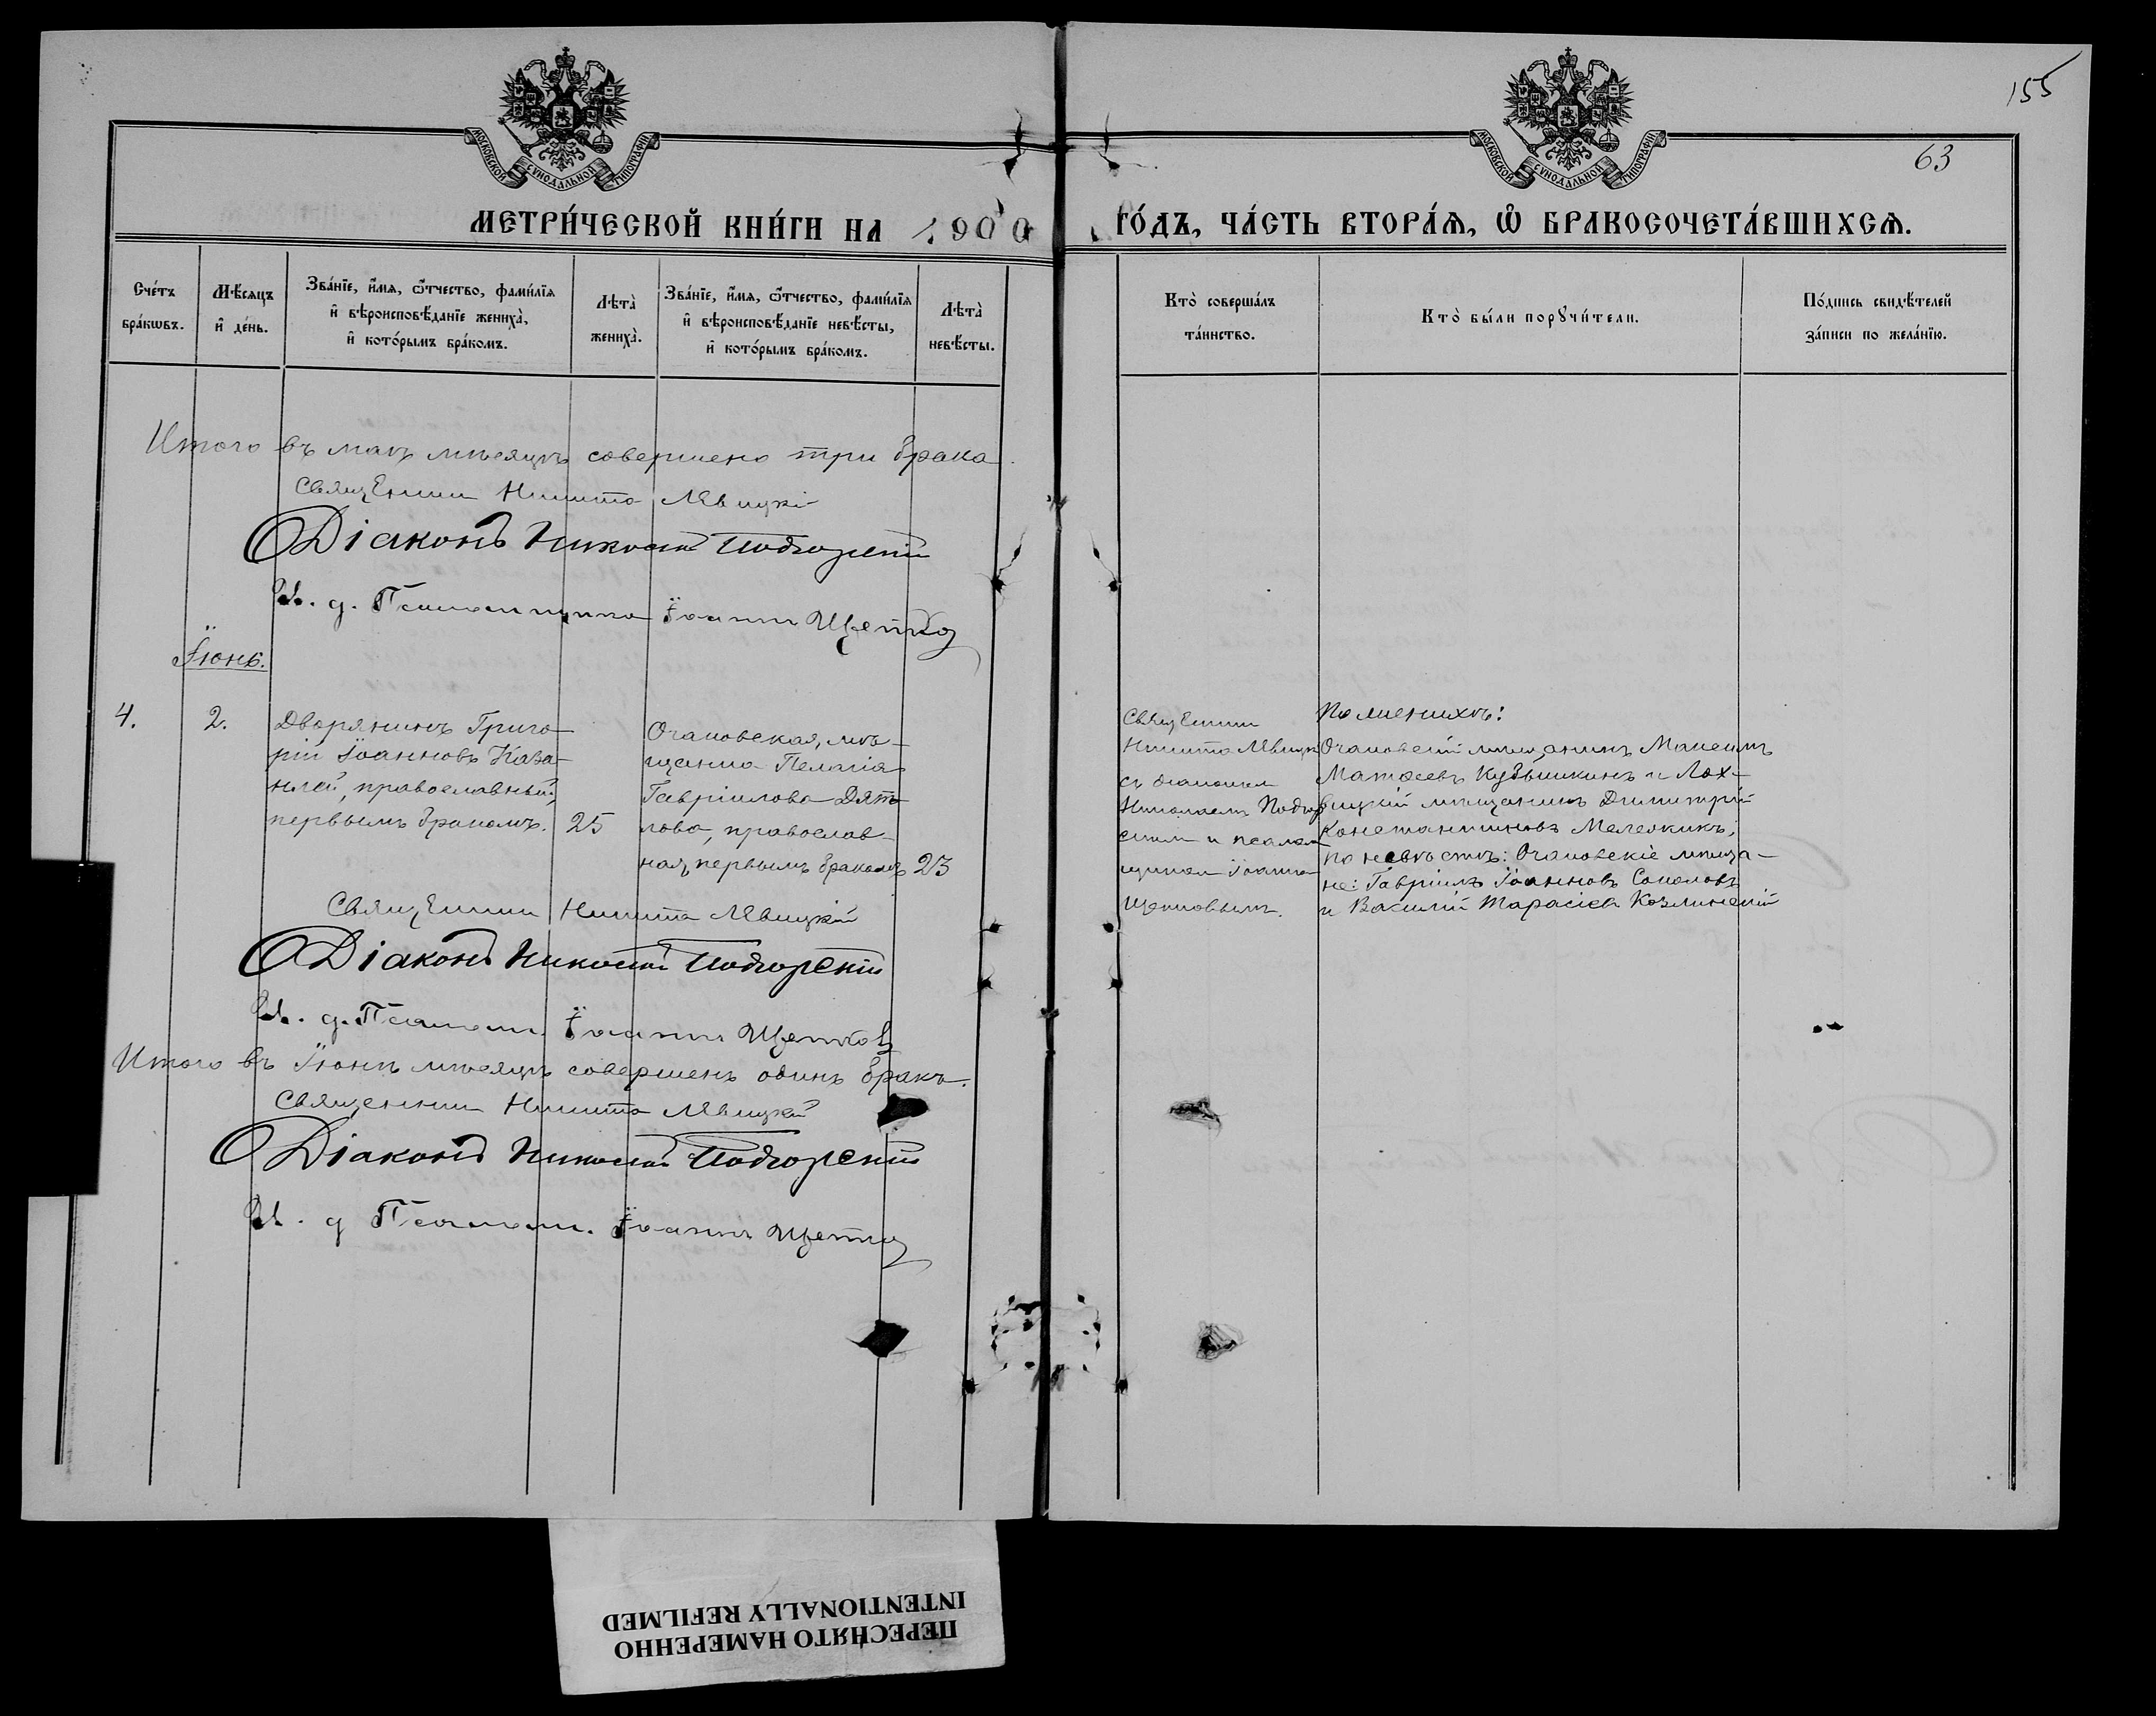 155
63
МОСКОВСКОЙ СѴНОДАЛЬНОЙ ТИПОГРАФІИ
МОСКОВСКОЙ СѴНОДАЛЬНОЙ ТИПОГРАФІИ
МЕТРИ́ЧЕСКОЙ КНИ́ГИ НА 1900 ГО́ДЪ, ЧА́СТЬ ВТОРА́Ѧ, Ѽ БРАКОСОЧЕТА́ВШИХСѦ.
Сче́тъ
бра́кѡвъ.
Мѣ́сяцъ
и҆ де́нь.
Зва́нїе, и҆́мя, ѻ҆́тчество, фами́лїя
и҆ вѣроисповѣ́данїе жениха̀,
и҆ кото́рымъ бра́комъ.
Лѣта̀
жениха̀.
Зва́нїе, и҆́мя, ѻ҆́тчество, фами́лїя
и҆ вѣроисповѣ́данїе невѣ́сты,
и҆ кото́рымъ бра́комъ.
Лѣта̀
невѣ́сты.
Кто̀ соверша́лъ
та́инство.
Кто̀ бы́ли порꙋчи́тели.
По́дпись свидѣ́телей
за́писи по жела́нїю.
Итого въ маѣ мѣсяцѣ совершено три брака.
Священник Никита Лѣвицкі
Діаконъ Николай Подгорскій
И. д. Псаломщика Іоаннъ Щепков
Іюнь.
4.
2.
Дворянинъ Григо-
рій Іоанновъ Каза-
нлей, православный,
первымъ бракомъ.
25
Очаковская, мѣ-
щанка Пелагія
Гавріилова Дят-
лова, православ-
ная, первымъ бракомъ
23
Священник
Никита Лѣвицк
съ діакономъ
Николаемъ Подгор
скимъ и псалом
щикомъ Іоанно
Щепковымъ.
По женихѣ:
Очаковскій мѣщанинъ Максимъ
Матѳеевъ Кубышкинъ и Лох-
вицкій мѣщанинъ Димитрій
Константиновъ
по невѣстѣ: Очаковскіе мѣща-
не: Гавріилъ Іоанновъ Соколовъ
и Василій Тарасіев Козлинскій
Священник Никита Лѣвицкій
Діаконъ Николай Подгорскій
И. д. Псаломщ. Іоаннъ Щепковъ
Итого въ Іюнѣ мѣсяцѣ совершенъ одинъ бракъ.
Священник Никита Лѣвицкій
Діаконъ Николай Подгорскій
И. д Псаломщ. Іоаннъ Щепков
ПЕРЕСНЯТО НАМЕРЕННО
INTENTIONALLY REFILMED